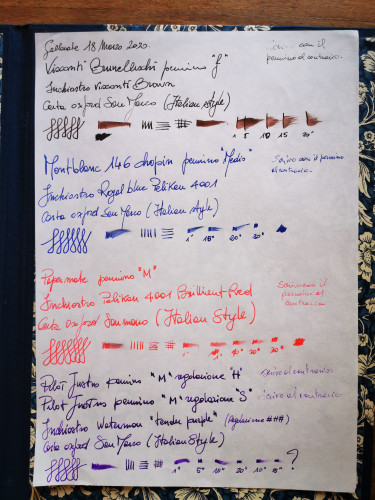 Sabato 18 Marzo 2020.
Scrivo con il
pennino al contrario.
Visconti Brunelleschi pennino "f"
Inchiostro Visconti Brown
Carta oxford San Marco (Italian style)
1 5 10 15 20"
Montblanc 146 chopin pennino "Medio"
Scrivo con il pennino
al contrario.
Inchiostro Royal blue Pelikan 4001
Carta oxford San Marco (Italian style)
1" 10" 20" 30"
Papermate pennino "M"
Scrivo con il
pennino al
contrario
Inchiostro Pelikan 4001 Brilliant Red
Carta oxford San marco (Italian Style)
1" 10" 20" 30"
Pilot Justus pennino "M" regolazione "H"
Scrivo al contrario
Pilot Justus pennino "M" regolazione "S"
Scrivo al contrario
Inchiostro Waterman "tender purple" (###)
Carta oxford San Marco (Italian Style)
1" 5" 10" 20" 10" 15" ?